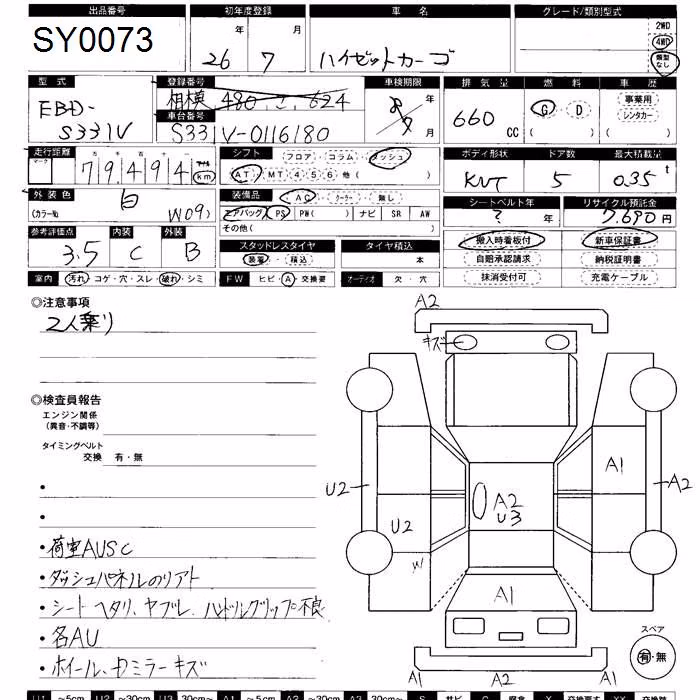 出品番号 初年度登録 車名 グレード/類別型式
SY0073 26年 7月 ハイゼットカーゴ 2WD 4WD 類型なし
型式 登録番号 車検期限 排気量 燃料 車歴
EBD-S331V 相模 480 年 月 660 CC G・D ( ) 事業用 レンタカー ( )
車台番号
S331V-0116180
走行距離 シフト フロア・コラム・ダッシュ ボディ形状 ドア数 最大積載量
マーク 十 万 千 79494 マイル km AT・MT 4 5 6 他( ) 5 0.35 t
外装色 装備品 AC・クーラー・無し シートベルト年 リサイクル預託金
(カラーNo. 白 W09) エアバッグ PS PW( ) ナビ SR AW ? 年 7,690 円
その他( )
参考評価点 内装 外装 搬入時看板付 新車保証書
3.5 C B スタッドレスタイヤ タイヤ積込 自賠承認請求 納税証明書
装着・積込 本 抹消受付可 充電ケーブル
室内 汚れ・コゲ・穴・スレ・破れ・シミ FW ヒビ・A・交換要 オーディオ 欠・穴
◎注意事項
2人乗り
A2
キズ
◎検査員報告
エンジン関係
(異音・不調等)
タイミングベルト
交換 有・無
A1
U2 A2 A2
U3
U2
W
・
・
・荷室AUSC
・ダッシュパネルのリアト
・シートヘタリ、ヤブレ、ハンドルグリップ不良
A1
・各AU
・ホイール、
ミラーキズ
スペア
有・無
A1 A2 A1
U1 ~5cm U2 ~30cm U3 30cm~ A1 ~5cm A2 ~30cm A3 30cm~ S サビ C 腐食 X 交換要す XX 交換跡